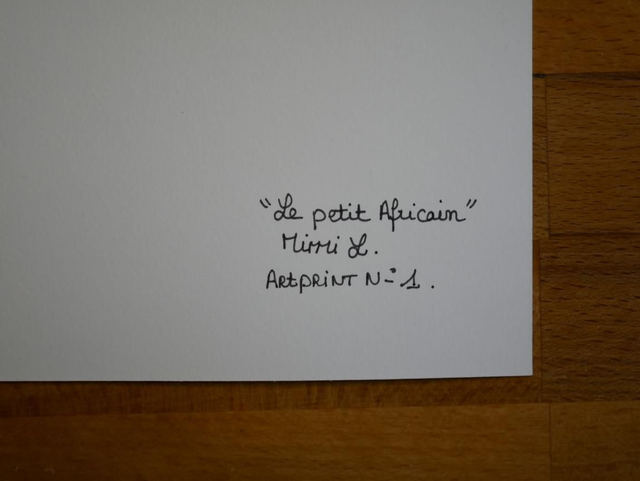 "Le petit Africain"
Mimi L.
ARtPRiNT N° 1.